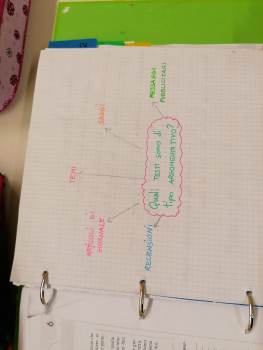 Quali TESTI SONO di
tipo ARGOMENTATIVO?
MESSAGGI
PUBBLICITARI
SAGGI
TEMI
ARTICOLI DI
GIORNALE
RECENSIONI